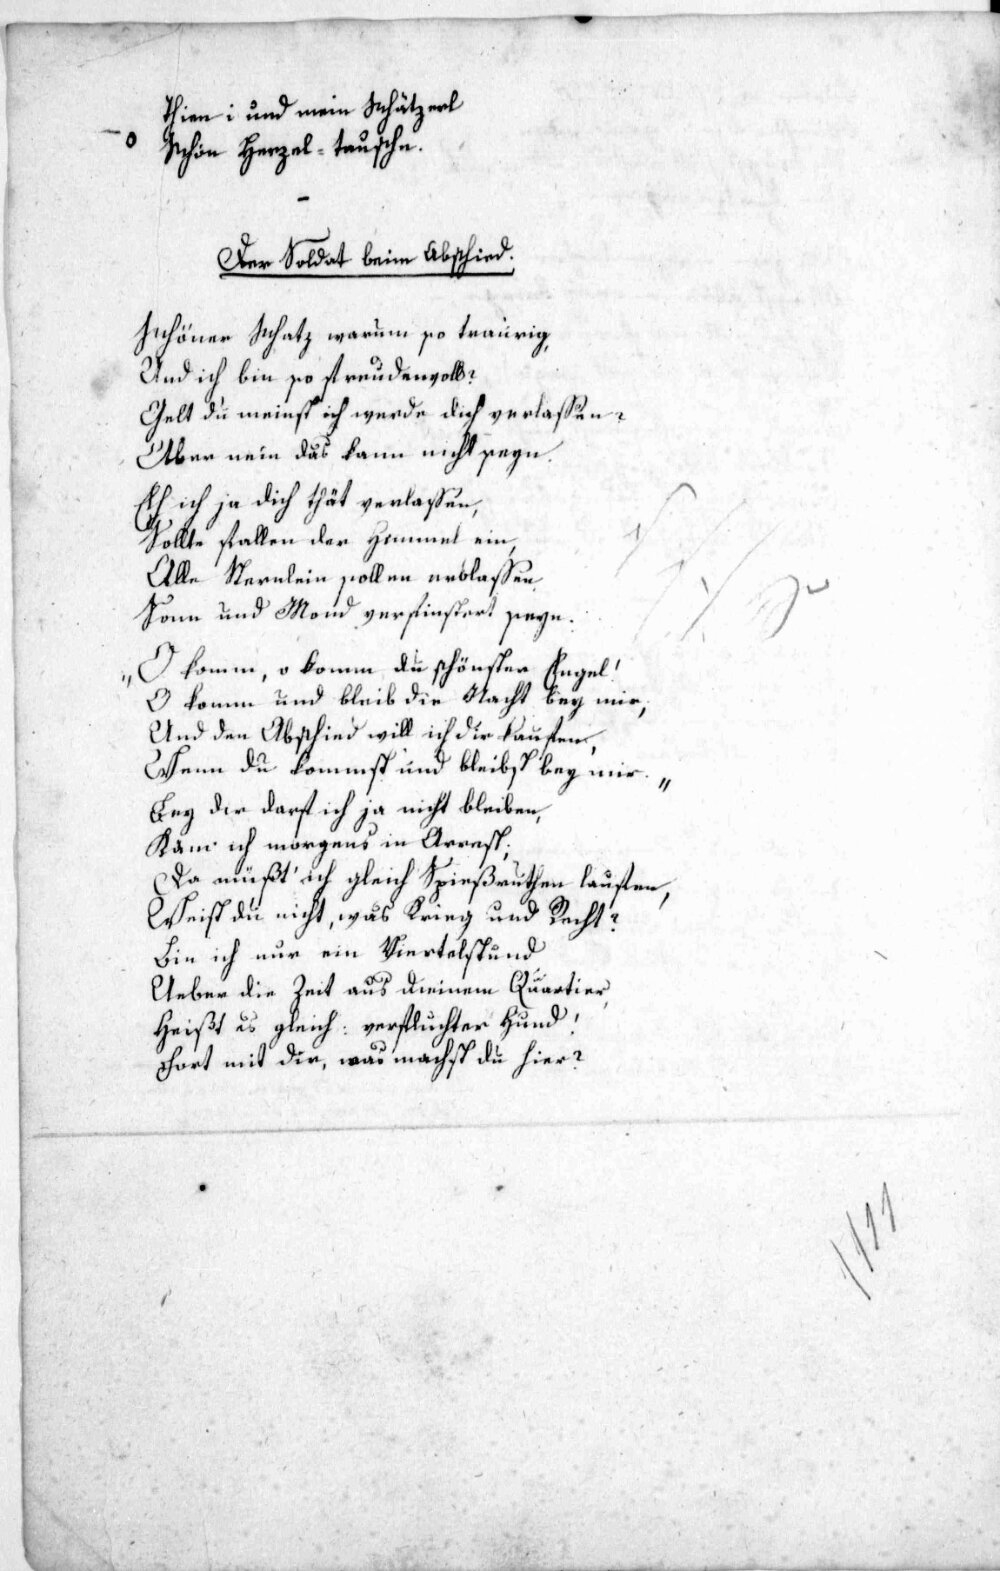 Thien i und mein Schätzerl
Schön Herzel-tauschn.
Der Soldat beim Abschied.
Schöner Schatz warum so traurig,
Und ich bin so freudenvoll?
Gelt du meinst ich werde dich verlassen?
Aber nein das kann nicht seyn.
Eh ich ja dich thät verlassen,
Sollte fallen der Himmel ein,
Alle Sternlein sollen erblassen
Sonn und Mond verfinstert seyn.
„O komm, o komm du schönster Engel!
O komm und bleib die Nacht bey mir,
Und den Abschied will ich dir kaufen,
Wenn du kommst und bleibst bey mir."
Bey dir darf ich ja nicht bleiben,
Käm ich morgens in Arrest,
Da müßt' ich gleich Spießruthen laufen,
Weist du nicht, was Krieg und Recht?
Bin ich nur ein Viertelstund
Ueber die Zeit aus meinem Quartier,
Heißt es gleich: verfluchter Hund!
Fort mit dir, was machst du hier?